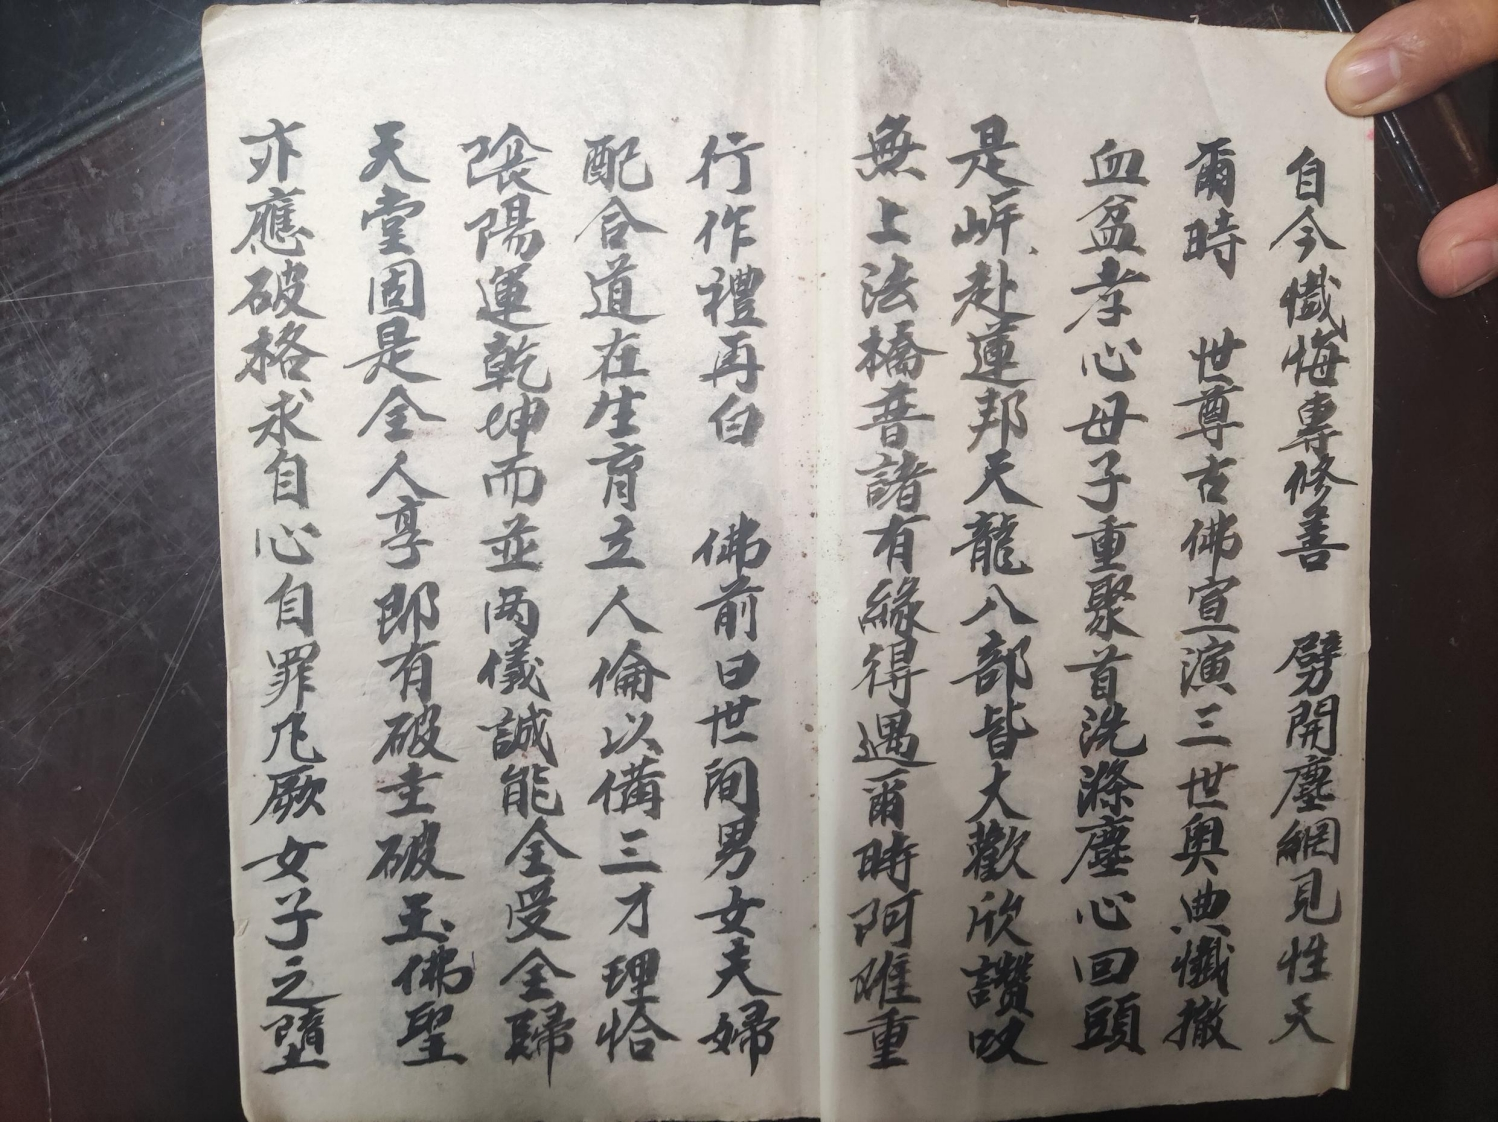 自今懺悔專修善　劈開塵網見性天
爾時　世尊古佛宣演三世奧典懺撤
血盆孝心母子重聚首洗滌塵心回頭
是岍赴蓮邦天龍八部皆大歡欣讚叹
無上法橋普諸有緣得遇爾時阿雎重
行作禮再白　佛前曰世间男女夫婦
配合道在生育立人倫以備三才理恰
陰陽運乾坤而並两儀誠能全受全歸
天堂固是全人享郎有破圭破玉佛聖
亦應破格求自心自罪凡厥女子之墮